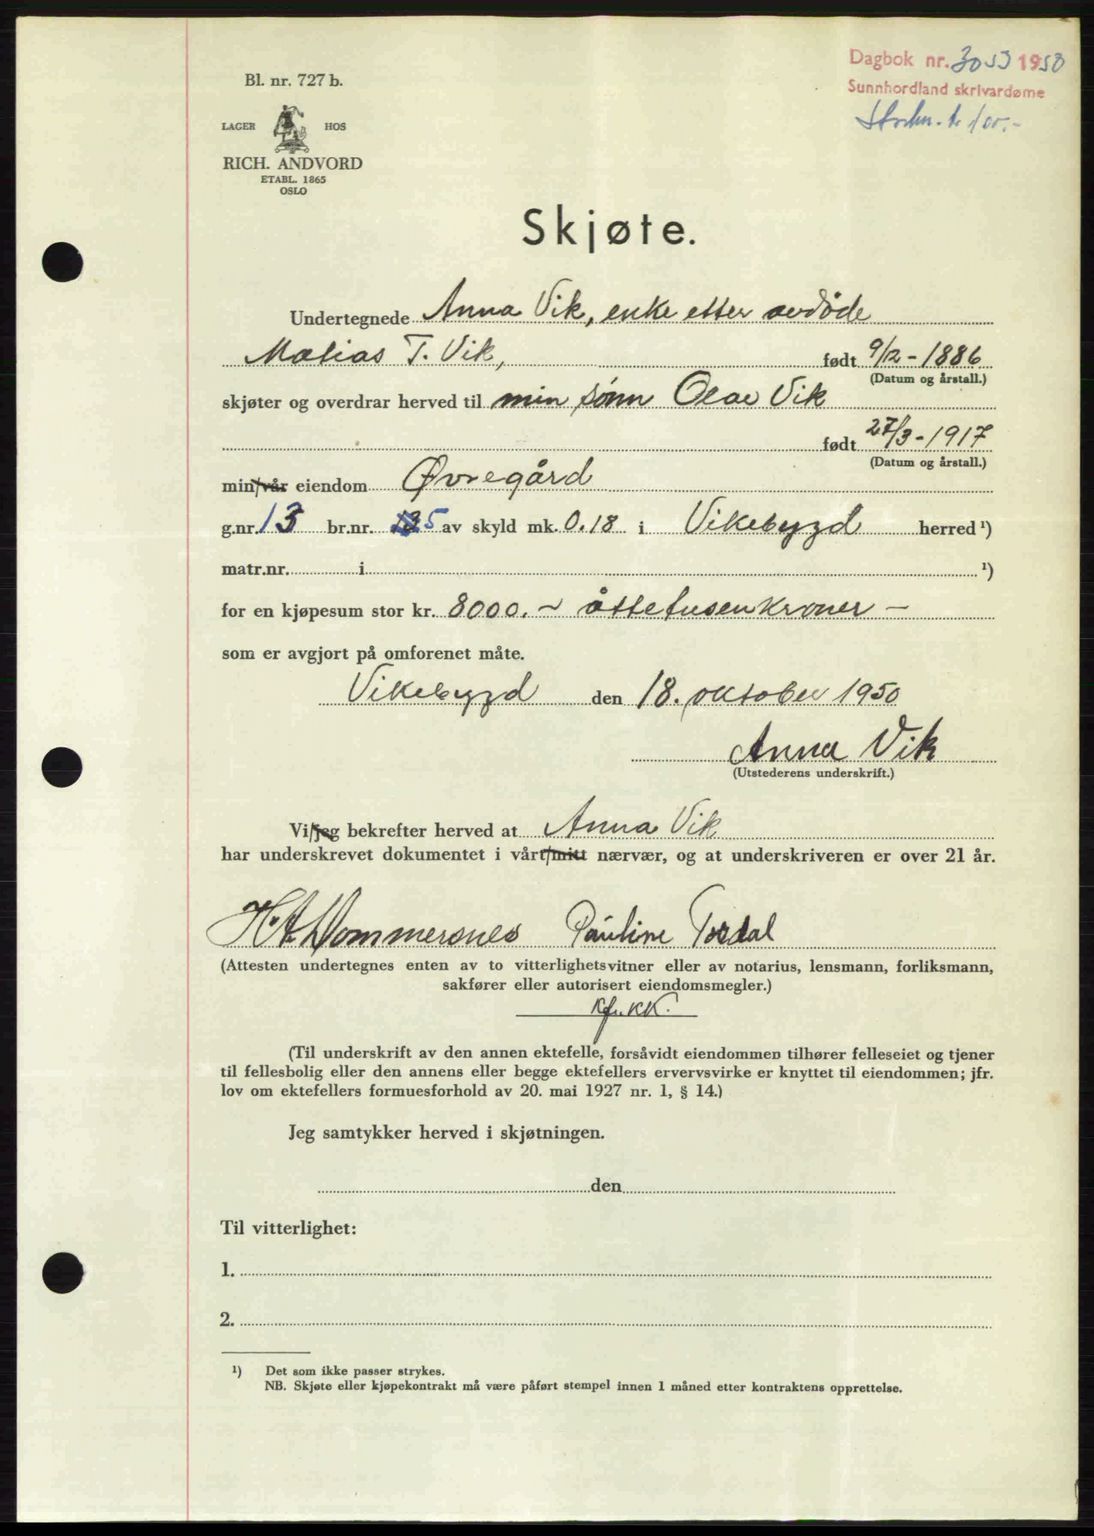 Dagbok nr. 3053 1950
Sunnhordland skrivardøme
kr 100.-
Bl. nr. 727 b.
LAGER HOS
RICH. ANDVORD
ETABL. 1865
OSLO
Skjøte.
Undertegnede Anna Vik, enke etter avdöde
Matias T. Vik, født 9/12-1886
(Datum og årstall.)
skjøter og overdrar herved til min sönn Olav Vik
født 27/3-1917
(Datum og årstall.)
min/vår eiendom Øvregård
g.nr. 13 br.nr. 5 av skyld mk. 0.18 i Vikebygd herred ¹)
matr.nr. i ¹)
for en kjøpesum stor kr. 8000.- åttetusenkroner -
som er avgjort på omforenet måte.
Vikebygd den 18. oktober 1950
Anna Vik
(Utstederens underskrift.)
Vi/jeg bekrefter herved at Anna Vik
har underskrevet dokumentet i vårt/mitt nærvær, og at underskriveren er over 21 år.
H.A. Vommersnes Pauline Tordal
(Attesten undertegnes enten av to vitterlighetsvitner eller av notarius, lensmann, forliksmann,
sakfører eller autorisert eiendomsmegler.)
Kfr. KK.
(Til underskrift av den annen ektefelle, forsåvidt eiendommen tilhører felleseiet og tjener
til fellesbolig eller den annens eller begge ektefellers ervervsvirke er knyttet til eiendommen; jfr.
lov om ektefellers formuesforhold av 20. mai 1927 nr. 1, § 14.)
Jeg samtykker herved i skjøtningen.
den
Til vitterlighet:
1.
2.
¹) Det som ikke passer strykes.
NB. Skjøte eller kjøpekontrakt må være påført stempel innen 1 måned etter kontraktens opprettelse.